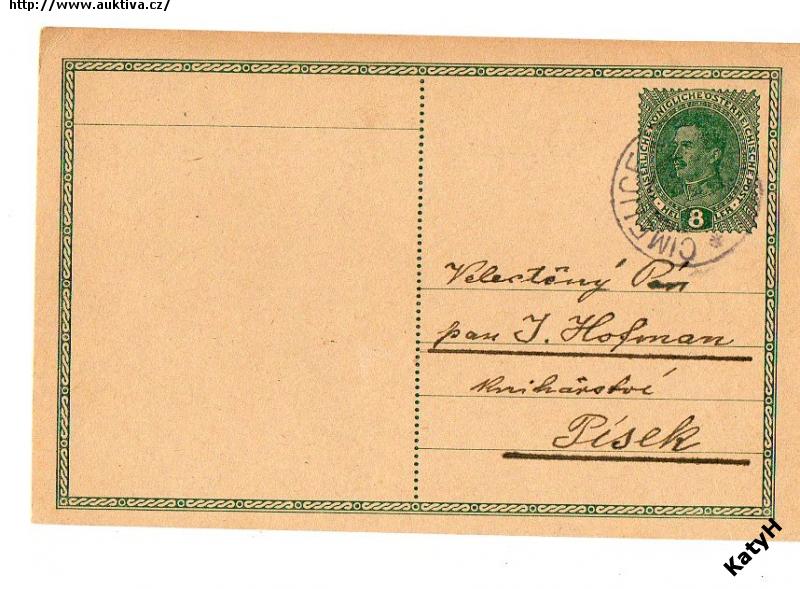 http://www.auktiva.cz/
KAISERLICHE KÖNIGLICHE ÖSTERREICHISCHE POST
8
HELLER
ČIMELICE
Velectěný Pán
pan J. Hofman
knihařství
Písek
KatyH